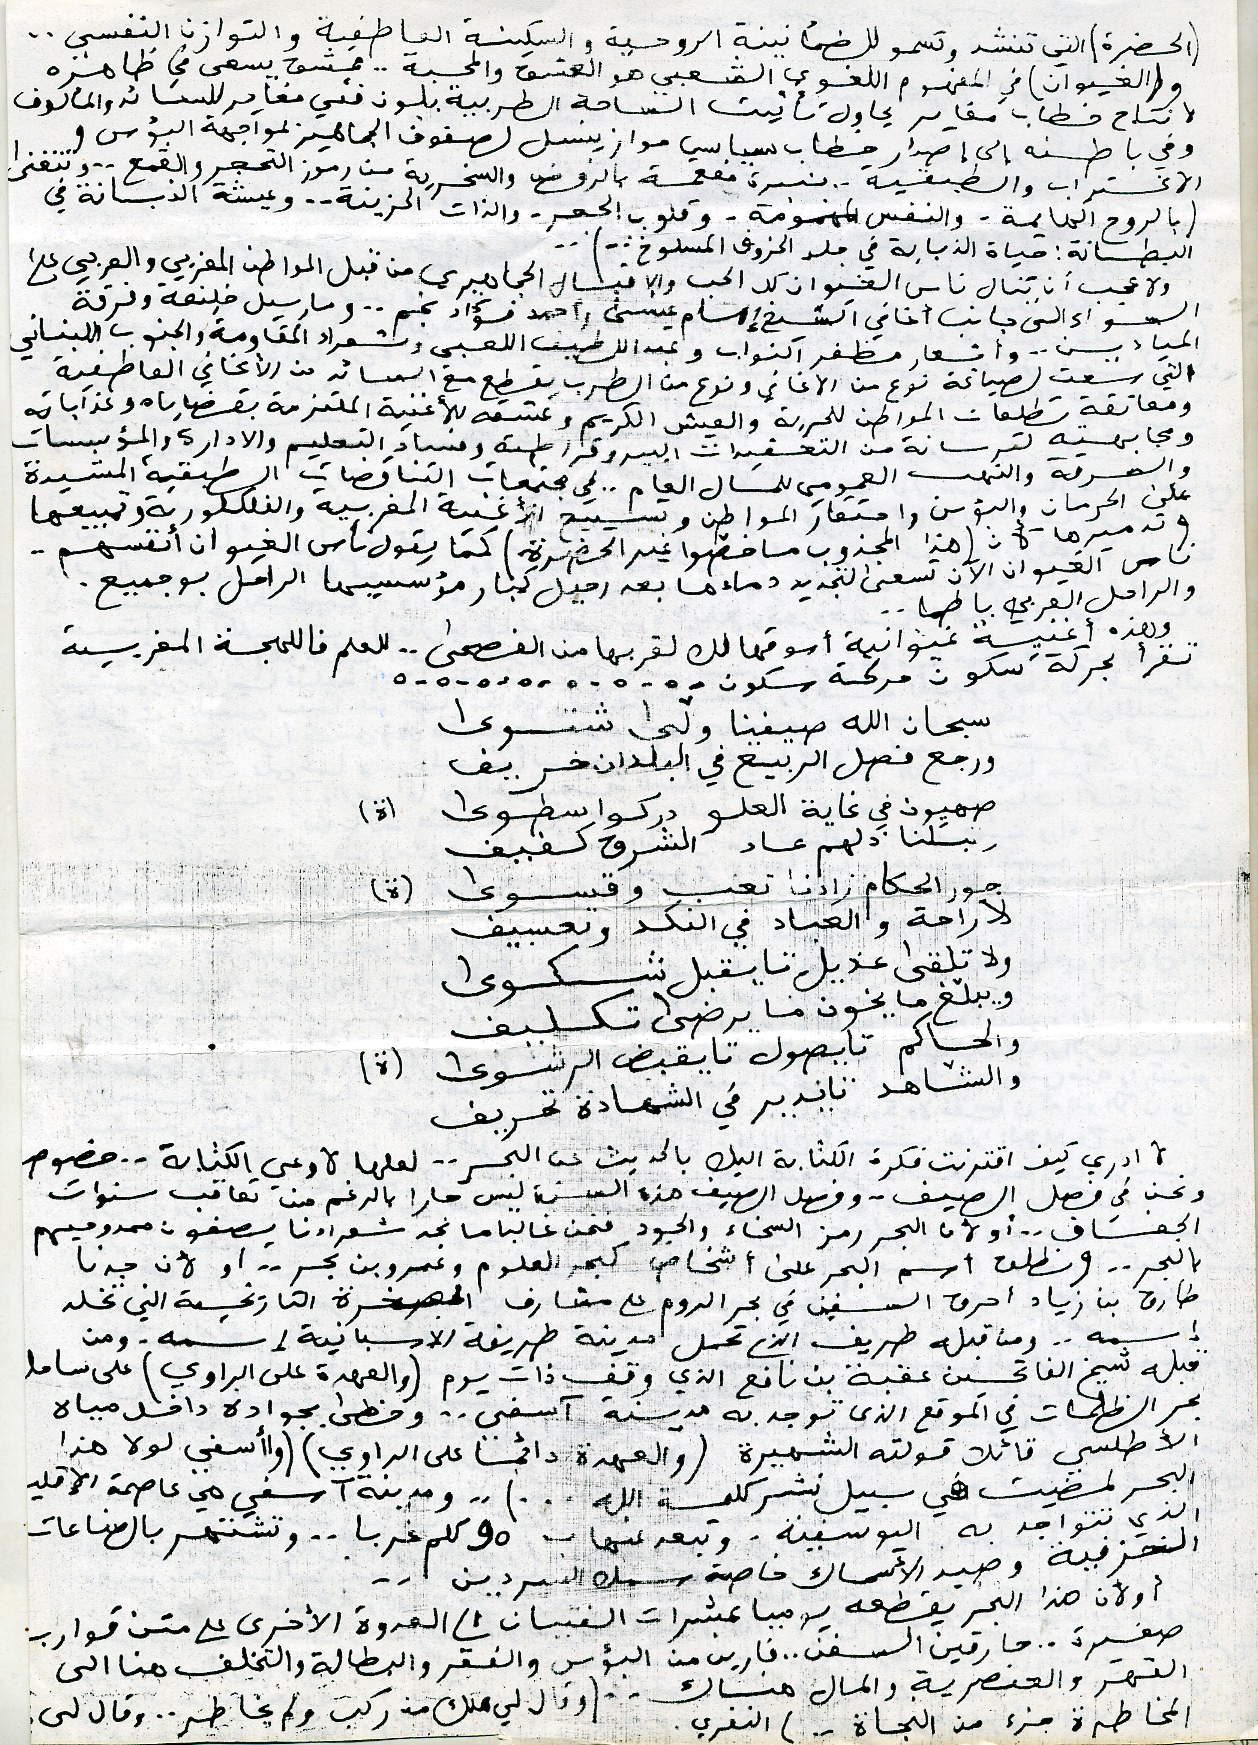 (الحضرة) التي تنشد وتسمو للطمأنينة الروحية والسكينة العاطفية والتوازن النفسي ..
و(الغيوان) في المفهوم اللغوي الشعبي هو العشق والمحبة .. عشق يسعى في ظاهره
لانتاج خطاب مغاير يحاول تأثيث الساحة الطربية بلون فني مغاير للسائد والمألوف
وفي باطنه إلى إصدار خطاب سياسي مواز ينسل لصفوف الجماهير لمواجهة البؤس و
الاغتراب والطبقية .. بنبرة مفعمة بالرفض والسخرية من رموز التحجر والقمع .. وتتغنى
(بالروح الهايمة - والنفس - وقلوب الحجر - والذات الحزينة .. وعيشة الذبانة في
البطانة: حياة الذبابة في جلد الخروف المسلوخ ..) ..
ولا عجب أن تنال ناس الغيوان كل الحب والاقبال الجماهيري من قبل المواطن المغربي والعربي على
السواء إلى جانب أغاني الشيخ إمام عيسى وأحمد فؤاد نجم .. ومارسيل خليفة وفرقة
الميادين .. وأشعار مظفر النواب وعبد اللطيف اللعبي وشعراء المقاومة والجنوب اللبناني
التي سعت لصياغة نوع من الاغاني ونوع من الطرب يقطع مع السائد من الأغاني العاطفية
ومعانقة تطلعات المواطن للحرية والعيش الكريم وعشقه للأغنية الملتزمة بقضاياه وعذاباته
ومجابهته لترسانة من التعقيدات البيروقراطية وفساد التعليم والادارة والمؤسسات
والسرقة والنهب العمومي للمال العام .. في مجتمعات التناقضات الطبقية المشيدة
على الحرمان والبؤس واحتقار المواطن وتسييج الأغنية المغربية والفلكلورية وتمييعها
وتدميرها لأن (هذا المجذوب ما خطوا غير الحضرة) كما يقول ناس الغيوان أنفسهم ..
ناس الغيوان الآن تسعى لتجديد دماءها بعد رحيل كبار مؤسسيها الراحل بوجميع .
والراحل العربي باطما ..
وهذه أغنية غيوانية أسوقها لك لقربها من الفصحى .. للعلم فاللهجة المغربية
تقرأ بحركة سكون حركة سكون -o-o-o-o-o-o-o-o
سبحان الله صيفنا ولّى شتوى
ورجع فصل الربيع في البلدان خريف
صهيون في غاية العلو دركوا سطوى (ة)
دلهم عاد الشروق كفيف
جور الحكام زادنا تعب وقسوى (ة)
لا راحة والعباد في النكد وتعسيف
ولا تلقى عديل تايقبل شكوى
ويبلّغ ما يخون ما يرضى تكليف
والحاكم تايصول تايقبض الرشوى (ة)
والشاهد تايدير في الشهادة تحريف
لا ادري كيف اقترنت فكرة الكتابة اليك بالحديث عن البحر .. لعلها لاوعي الكتابة .. خصوصا
ونحن في فصل الصيف - وفصل الصيف هذه السنة ليس حارا بالرغم من تعاقب سنوات
الجفاف .. أو لأن البحر رمز السخاء والجود فنحن غالبا ما نجد شعراءنا يصفون ممدوحيهم
بالبحر .. ونطلق اسم البحر على أشخاص كبحر العلوم وعمرو بن بحر .. أو لأن جدنا
طارق بن زياد احرق السفن في بحر الروم على مشارف الصخرة التاريخية التي تخلد
إسمه .. ومن قبله طريف الذي تحمل مدينة طريفة الاسبانية إسمه - ومن
قبله شيخ الفاتحين عقبة بن نافع الذي وقف ذات يوم (والعهدة على الراوي) على ساحل
بحر الظلمات في الموقع الذي توجد به مدينة آسفي .. وخطى بجواده داخل مياه
الأطلسي قائلا قولته الشهيرة (والعهدة دائما على الراوي) (واأسفي لولا هذا
البحر لمضيت في سبيل نشر كلمة الله ...) .. ومدينة آسفي هي عاصمة الإقليم
الذي تتواجد به اليوسفية - وتبعد عنها ب 90 كلم غربا .. وتشتهر بالصناعات
الخزفية وصيد الاسماك خاصة سمك السردين ..
أو لأن هذا البحر يقطعه يوميا عشرات الفتيان إلى العدوة الأخرى على متن قوارب
صغيرة .. حارقين السفن .. فارين من البؤس والفقر والبطالة والتخلف هنا الى
القهر والعنصرية والمال هناك .. (وقال لي هلك من ركب ولم يخاطر .. وقال لي
المخاطرة جزء من النجاة ..) النفري .